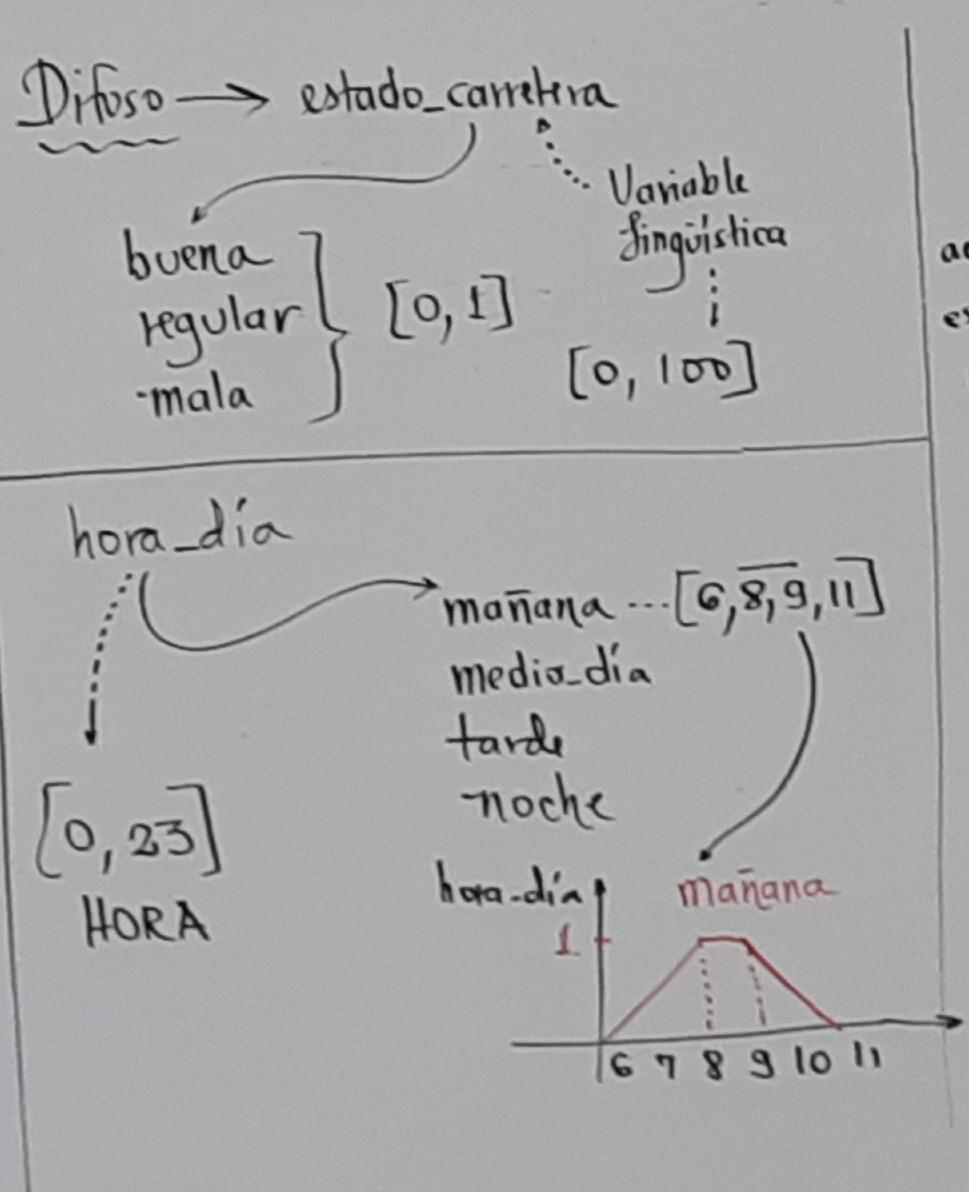 Difuso → estado_carretera
Variable
lingüística
buena
regular
mala
[0, 1]
[0, 100]
hora_día
mañana ... [6, 8, 9, 11]
medio_día
tarde
noche
[0, 23]
HORA
hora_día
mañana
1
6 7 8 9 10 11